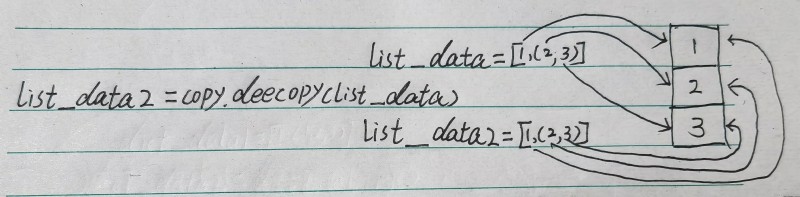 list_data=[1,(2,3)]
1
2
list_data2=copy.deecopy(list_data)
3
list_data2=[1,(2,3)]